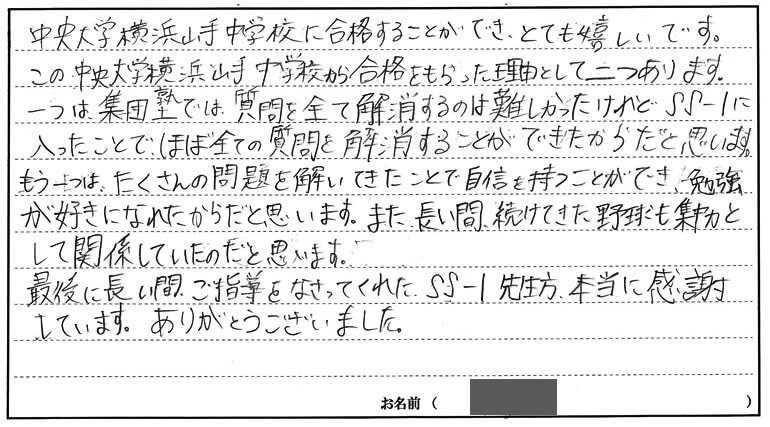 中央大学横浜山手中学校に合格することができ、とても嬉しいです。
この中央大学横浜山手中学校から合格をもらった理由として二つあります。
一つは、集団塾では、質問を全て解消するのは難しかったけれど SS-1に
入ったことで、ほぼ全ての質問を解消することができたからだと思います。
もう一つは、たくさんの問題を解いてきたことで自信を持つことができ、勉強
が好きになれたからだと思います。また、長い間、続けてきた野球も集中力と
して関係していたのだと思います。
最後に長い間、ご指導をなさってくれた、SS-1先生方、本当に感謝
しています。ありがとうございました。
お名前（ ）